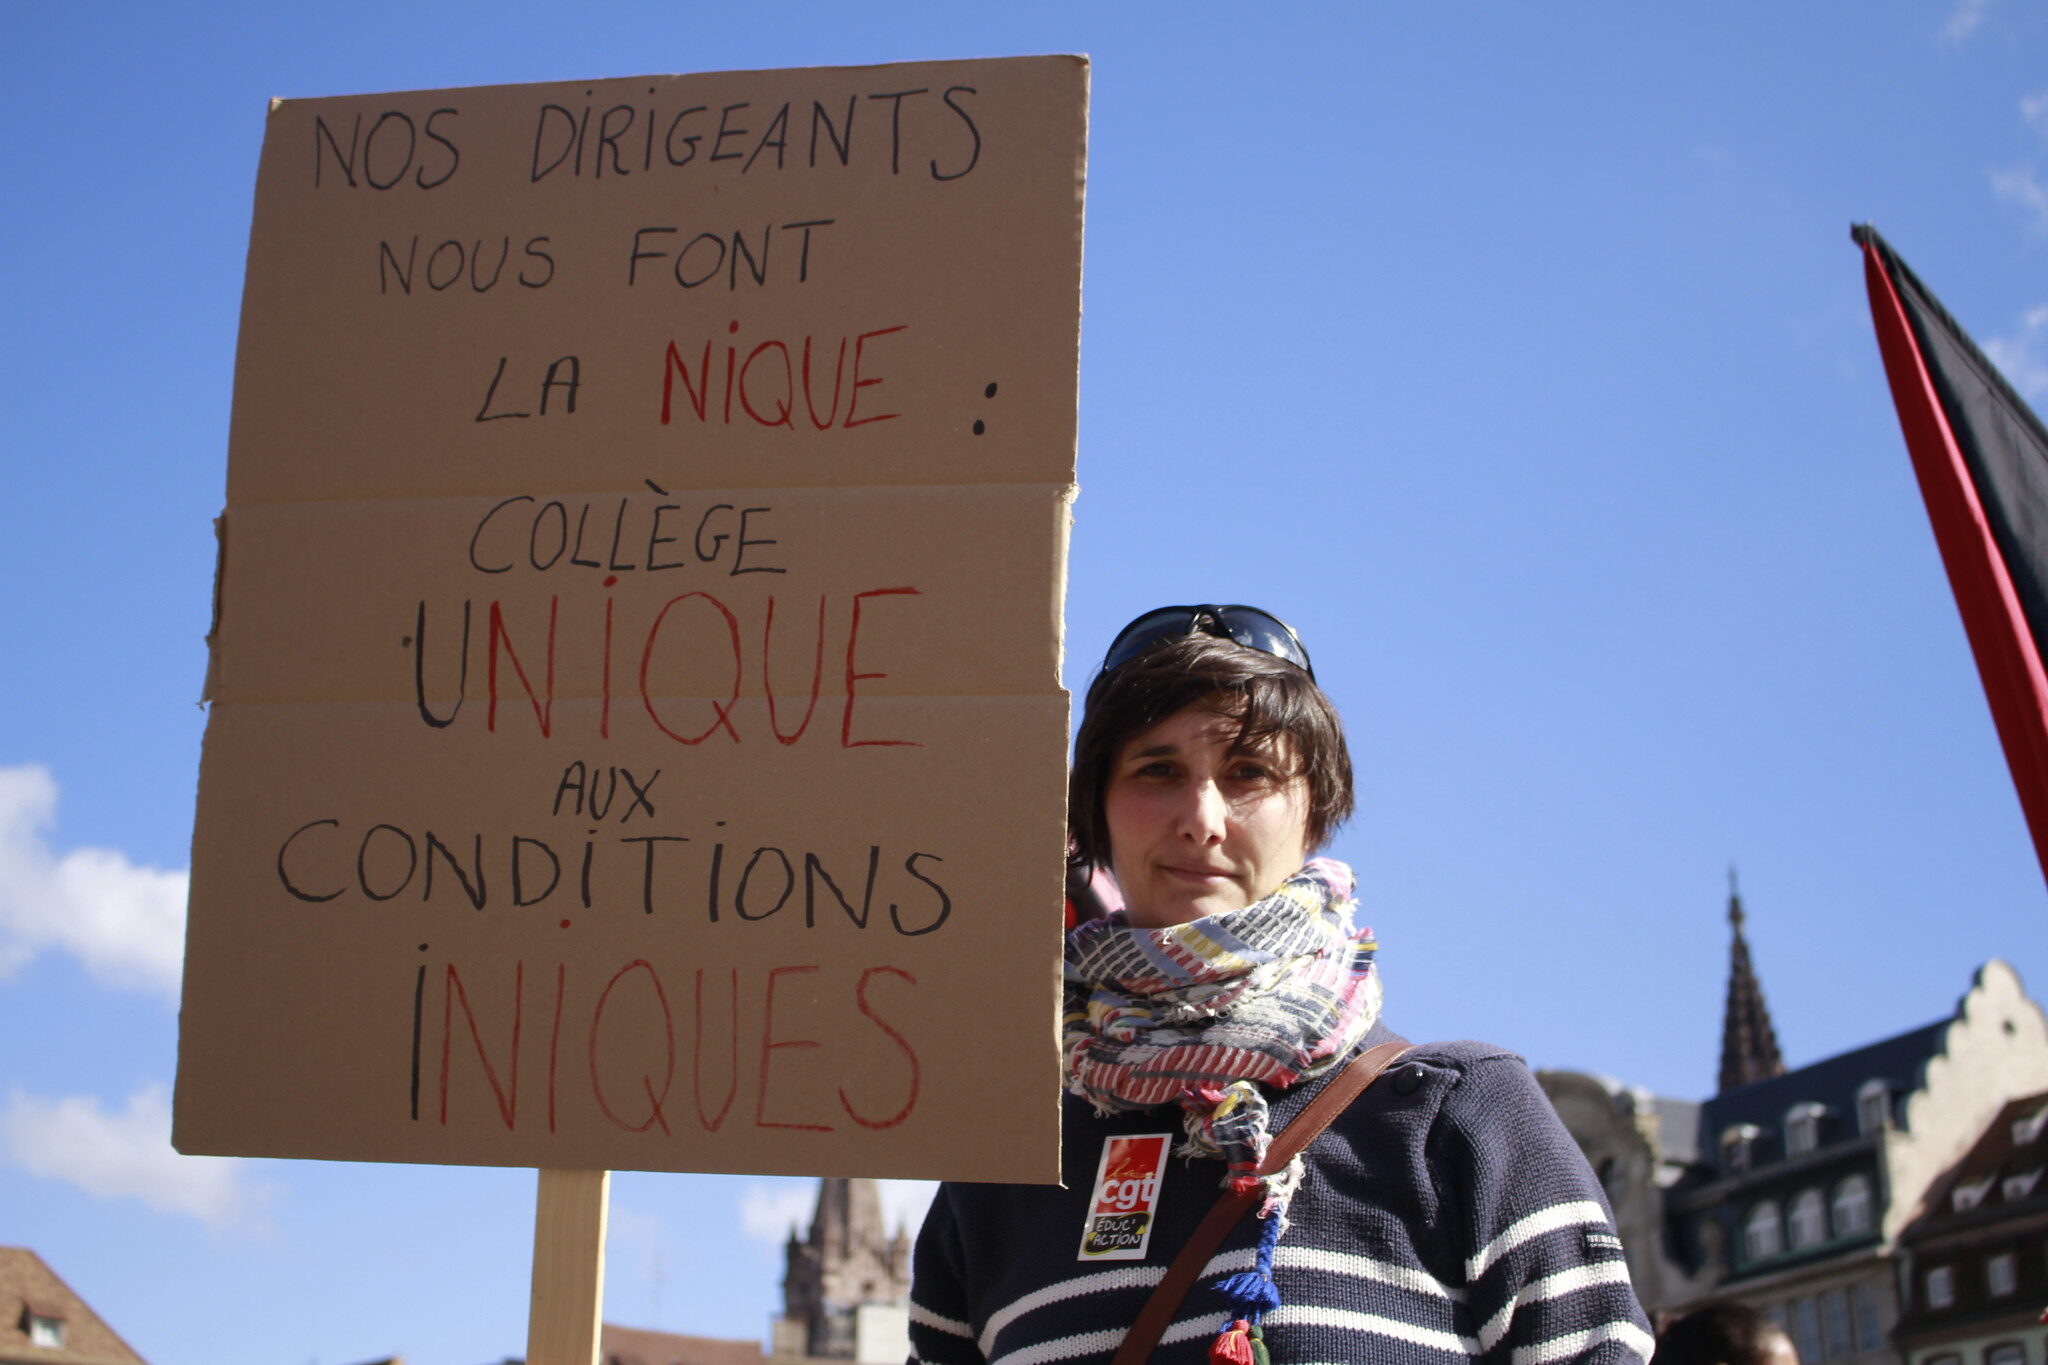 NOS DIRIGEANTS
NOUS FONT
LA NIQUE :
COLLÈGE
UNIQUE
AUX
CONDITIONS
INIQUES
la
cgt
ÉDUC'
ACTION